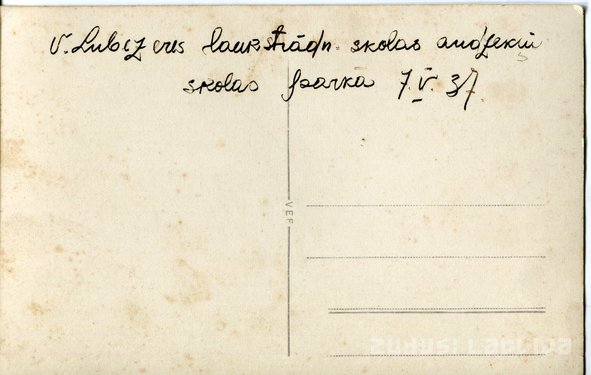 V. Lubezeres lauksaimn. skolas audzēkņi
skolas parkā 7.V.37.
VEF
zudusi latvija